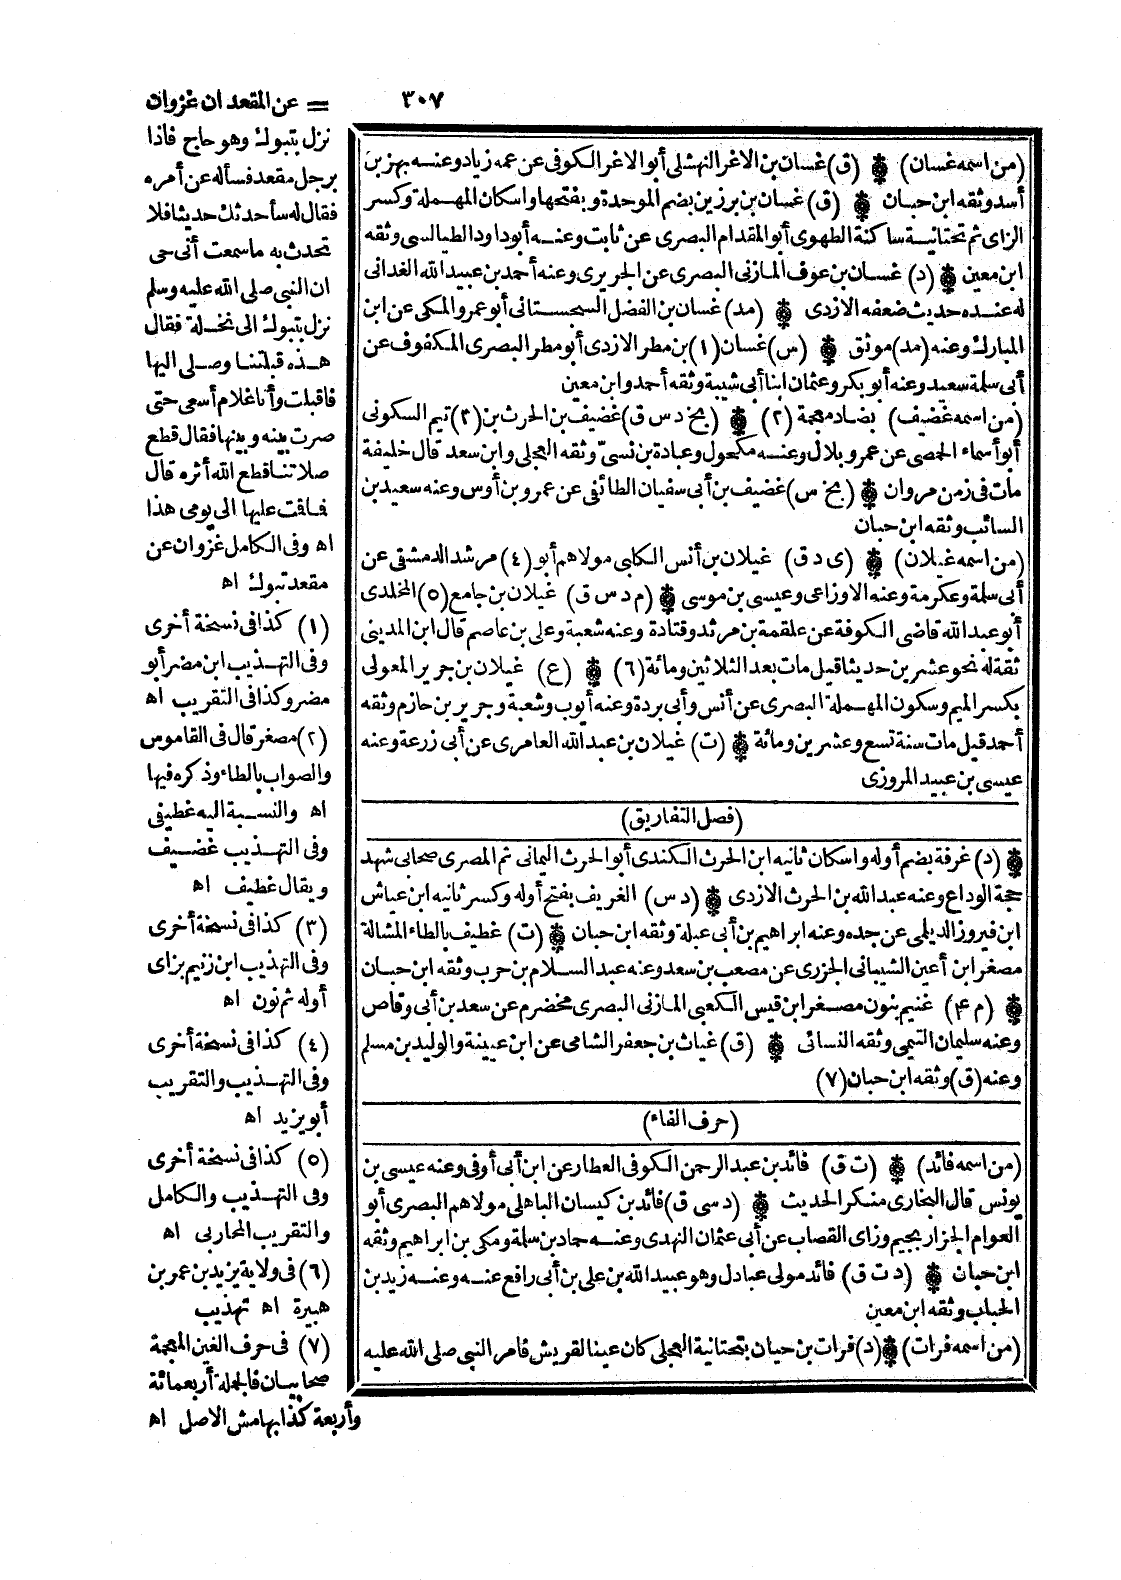 ٣٠٧
(من اسمه غسان) (ق) غسان بن الاغر النهشلى أبو الاغر الكوفى عن عمه زياد وعنه بهز بن
أسد وثقه ابن حبان (ق) غسان بن برزين بضم الموحدة وبفتحها واسكان المهملة وكسر
الزاى ثم تحتانية ساكنة الطهوى أبو المقدام البصرى عن ثابت وعنه أبو داود الطيالسى وثقه
ابن معين (د) غسان بن عوف المازنى البصرى عن الجريرى وعنه أحمد بن عبيد الله الغدانى
له عنده حديث ضعفه الازدى (مد) غسان بن الفضل السجستانى أبو عمرو المكى عن ابن
المبارك وعنه (مد) موثق (س) غسان (١) بن مطر الازدى أبو مطر البصرى المكفوف عن
أبى سلمة سعيد وعنه أبو بكر وعثمان ابنا أبى شيبة وثقه أحمد وابن معين
(من اسمه غضيف) بضاد معجمة (٢) (بخ د س ق) غضيف بن الحرث بن (٣) تيم السكونى
أبو أسماء الحمصى عن عمر وبلال وعنه مكحول وعبادة بن نسىّ وثقه العجلى وابن سعد قال خليفة
مات فى زمن مروان (بخ س) غضيف بن أبى سفيان الطائفى عن عمرو بن أوس وعنه سعيد بن
السائب وثقه ابن حبان
(من اسمه غيلان) (ى د ق) غيلان بن أنس الكلبى مولاهم أبو (٤) مرشد الدمشقى عن
أبى سلمة وعكرمة وعنه الاوزاعى وعيسى بن موسى (م د س ق) غيلان بن جامع (٥) المخلدى
أبو عبد الله قاضى الكوفة عن علقمة بن مرثد وقتادة وعنه شعبة وعلى بن عاصم قال ابن المدينى
ثقة له نحو عشرين حديثا قيل مات بعد الثلاثين ومائة (٦) (ع) غيلان بن جرير المعولى
بكسر الميم وسكون المهملة البصرى عن أنس وأبى بردة وعنه أيوب وشعبة وجرير بن حازم وثقه
أحمد قيل مات سنة تسع وعشرين ومائة (ت) غيلان بن عبد الله العامرى عن أبى زرعة وعنه
عيسى بن عبيد المروزى
(فصل التفاريق)
(د) غرفة بضم أوله واسكان ثانيه ابن الحرث الكندى أبو الحرث اليمانى ثم المصرى صحابى شهد
حجة الوداع وعنه عبد الله بن الحرث الازدى (د س) الغريف بفتح أوله وكسر ثانيه ابن عياش
ابن فيروز الديلى عن جده وعنه ابراهيم بن أبى عبلة وثقه ابن حبان (ت) غطيف بالطاء المشالة
مصغر ابن أعين الشيبانى الجزرى عن مصعب بن سعد وعنه عبد السلام بن حرب وثقه ابن حبان
(م ٤) غنيم بنون مصغر ابن قيس الكعبى المازنى البصرى مخضرم عن سعد بن أبى وقاص
وعنه سليمان التيمى وثقه النسائى (ق) غياث بن جعفر الشامى عن ابن عيينة والوليد بن مسلم
وعنه (ق) وثقه ابن حبان (٧)
(حرف الفاء)
(من اسمه فائد) (ت ق) فائد بن عبد الرحمن الكوفى العطار عن ابن أبى أوفى وعنه عيسى بن
يونس قال البخارى منكر الحديث (د سى ق) فائد بن كيسان الباهلى مولاهم البصرى أبو
العوام الجزار بجيم وزاى القصاب عن أبى عثمان النهدى وعنه حماد بن سلمة ومكى بن ابراهيم وثقه
ابن حبان (د ت ق) فائد مولى عبادل وهو عبيد الله بن على بن أبى رافع عنه وعنه زيد بن
الحباب وثقه ابن معين
(من اسمه فرات) (د) فرات بن حيان بتحتانية العجلى كان عينا لقريش فامر النبى صلى الله عليه
= عن المقعد ان غزوان
نزل بتبوك وهو حاج فاذا
برجل مقعد فسأله عن أمره
فقال له سأحدثك حديثا فلا
تحدث به ما سمعت أنى حى
ان النبى صلى الله عليه وسلم
نزل بتبوك الى نخلة فقال
هذه قبلتنا وصلى اليها
فاقبلت وأنا غلام أسعى حتى
صرت بينه وبينها فقال قطع
صلاتنا قطع الله أثره قال
فما قت عليها الى يومى هذا
اه وفى الكامل غزوان عن
مقعد تبوك اه
(١) كذا فى نسخة أخرى
وفى التهذيب ابن مضر أبو
مضر وكذا فى التقريب اه
(٢) مصغر قال فى القاموس
والصواب بالطاء وذكره فيها
اه والنسبة اليه غطيفى
وفى التهذيب غضيف
ويقال غطيف اه
(٣) كذا فى نسخة أخرى
وفى التهذيب ابن زنيم بزاى
أوله ثم نون اه
(٤) كذا فى نسخة أخرى
وفى التهذيب والتقريب
أبو يزيد اه
(٥) كذا فى نسخة أخرى
وفى التهذيب والكامل
والتقريب المحاربى اه
(٦) فى ولاية يزيد بن عمر بن
هبيرة اه تهذيب
(٧) فى حرف الغين المعجمة
صحابيان فالجملة أربعمائة
وأربعة كذا بهامش الاصل اه